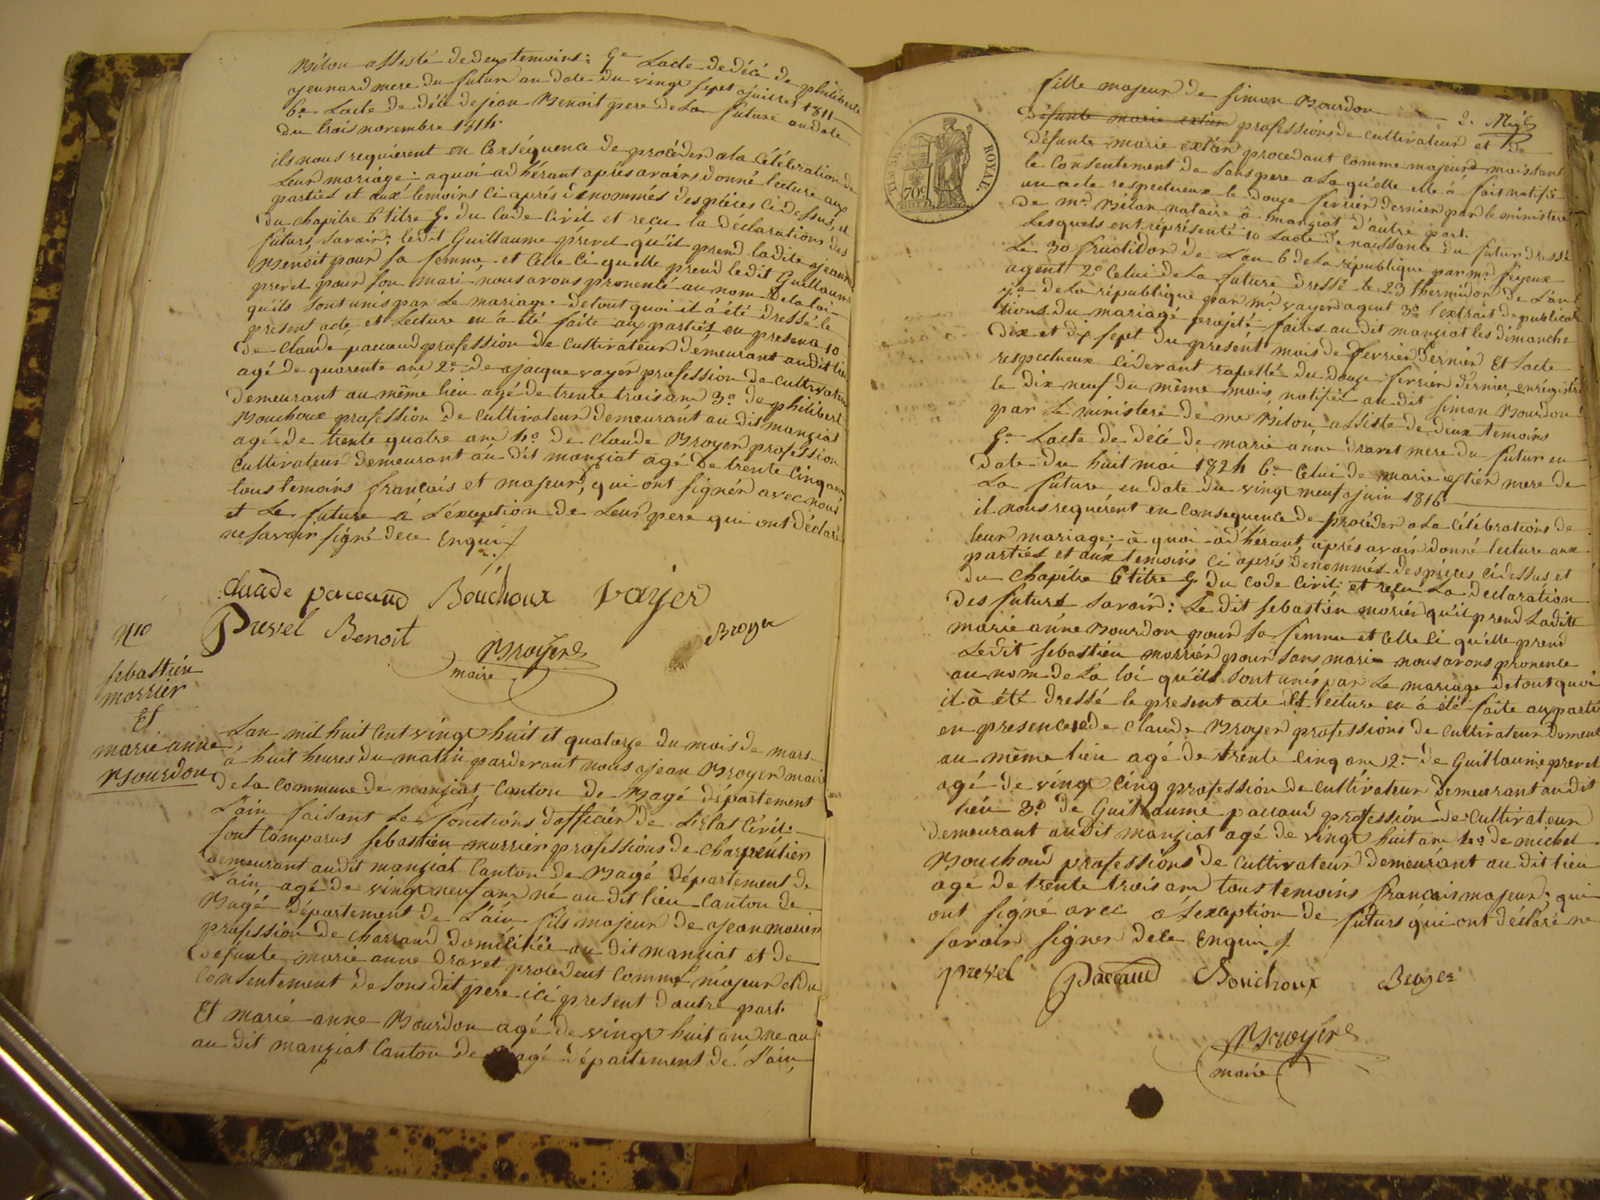 Bélou assisté de deux temoins: 5e Lacte de décé de philiberte
jeunard mere du futur au date du vingt sept juillet 1811
6e Lacte de décé de jean Benoit pere de La future au date
du trois novembre 1814.
ils nous requierent en Conséquence de procéder a la Célébration de
Leur mariage: a quoi adhérant aprés avoirs donné lecture aux
partiés et aux témoins Ci aprés dénommés des piéces Ci dessus, et
du chapitre 6 titre 5. du Code Civil et reçu la déclarations des
futurs, Savoir: ledit Guillaume prevel qu'il prend ladite jeanne
Benoit pour sa femme et Celle Ci quelle prend ledit Guillaume
prevel pour son mari nous avons prononcé au nom de la loi
qu'ils Sont unis par Le mariage. de tout quoi il á été dressé le
présent acte et Lecture en á été faite aux partiés en presence 1o
de Claude paccaud profession de Cultivateur démeurant audit lieu
agé de quarente ans 2o de jacque voyer profession de Cultivateur
demeurant au même lieu agé de trente trois ans 3o de philibert
Bouchoux profession de Cultivateur demeurant au dit manziat
agé de trente quatre ans 4o de Claude Broyer profession
Cultivateur demeurant au dit manziat agé de trente Cinq ans
tous temoins français et majeur, qui ont signér avec nous
et Le future á L'éxception de Leur pere qui ont déclaré
ne savoir signé de ce Enquis
Claude paccaud Bouchoux voyer
Prevel Benoit Broyer
Broyer
maire
No
Sebastién
morrier
Et
marie anne
Bourdon
Lan mil huit Cent vingt huit et quatorze du mois de mars
a huit heures du matin parderant nous jean Broyer maire
de La Commune de manziat Canton de Bagé département
L'ain faisant Le fonctions dofficier de L'Etat Civil.
Sont Comparus Sebastien morrier profession de Charpentier
demeurant au dit manziat Canton de Bagé Département de
L'ain agé de vingt neuf ans né au dit lieu Canton de
Bagé Département de L'ain fils majeur de jean morier
profession de Charraud domicilié au dit manziat et de
Defunte marie anne Dravet procédent Comme majeur et du
Consentement de Son dit pere ici présent d'autre part.
Et marie anne Bourdon agé de vingt huit ans ne au
au dit manziat Canton de Bagé département de L'ain,
fille majeur de Simon Bourdon
2.
Défunte marie professions de Cultivateur et de
défunte marie procedant Comme majeure mais sans
le Consentement de Sons pere a La qu'elle elle á fait notifié
un acte respectueux le Douze fevrier dernier par le ministere
de me Bélou notaire á manziat d'autre part.
Lesquels ont réprésenté 1o Lacte de naissance du futur dressé
Le 30 fructidor de L'an 6 de La république par mr
agent 2o Celui de La future dressé le 23 thermidor de L'an
de La république par mr vayer agent 3o L'extrait de publicat
tions du mariage projeté faites au dit manziat les dimanche
dix et dix sept du present mois de fevrier dernier Et Lacte
respectueux Ciderant rapellé du Douze fevrier dérnier, enregistré
le dix neuf du même mois, notifié au dit Simon Bourdon
par le ministere de me Bélou assisté de deux temoins
5e Lacte de décé de marie anne dravet mere du futur en
date du huit mai 1824 6e Celui de marie mere de
La future en date du vingt neuf juin 1816
il nous requérent en Consequence de procéder a La Célébrations de
leur mariage: á quoi adhérant aprés avoir donné lecture aux
partiés et aux temoins Ci aprés dénommés des piéces Cidessus et
du Chapitre 6 titre 5 du Code Civil et reçu La déclaration
des futurs Savoir: Le dit Sebastién morier qu'il prend Ladite
marie anne Bourdon pour Sa femme et Celle Ci qu'elle prend
Ledit Sebastien morrier pour Sons mari nous avons prononcé
au nom de La loi qu'ils Sont unis par Le mariage de tout quoi
il á été dressé le present acte Et lecture en á été faite aux partié
en presence 1o de Claude Broyer professions de Cultivateur demeur
au même lieu agé de trente Cinq ans 2o de Guillaume prevel
agé de vingt Cinq profession de Cultivateur demeurant au dit
lieu 3o de Guillaume paccaud profession de Cultivateur
demeurant audit manziat agé de vingt huit ans 4o de michel
Bouchoux professions de Cultivateur demeurant au dit lieu
agé de trente trois ans tous temoins français majeur, qui
ont Signé avec á L'exception de futurs qui ont déclaré ne
Savoir Signer de ce Enquis
prevel Paccaud Bouchoux Broyer
Broyer
maire
70c
ROYAL.